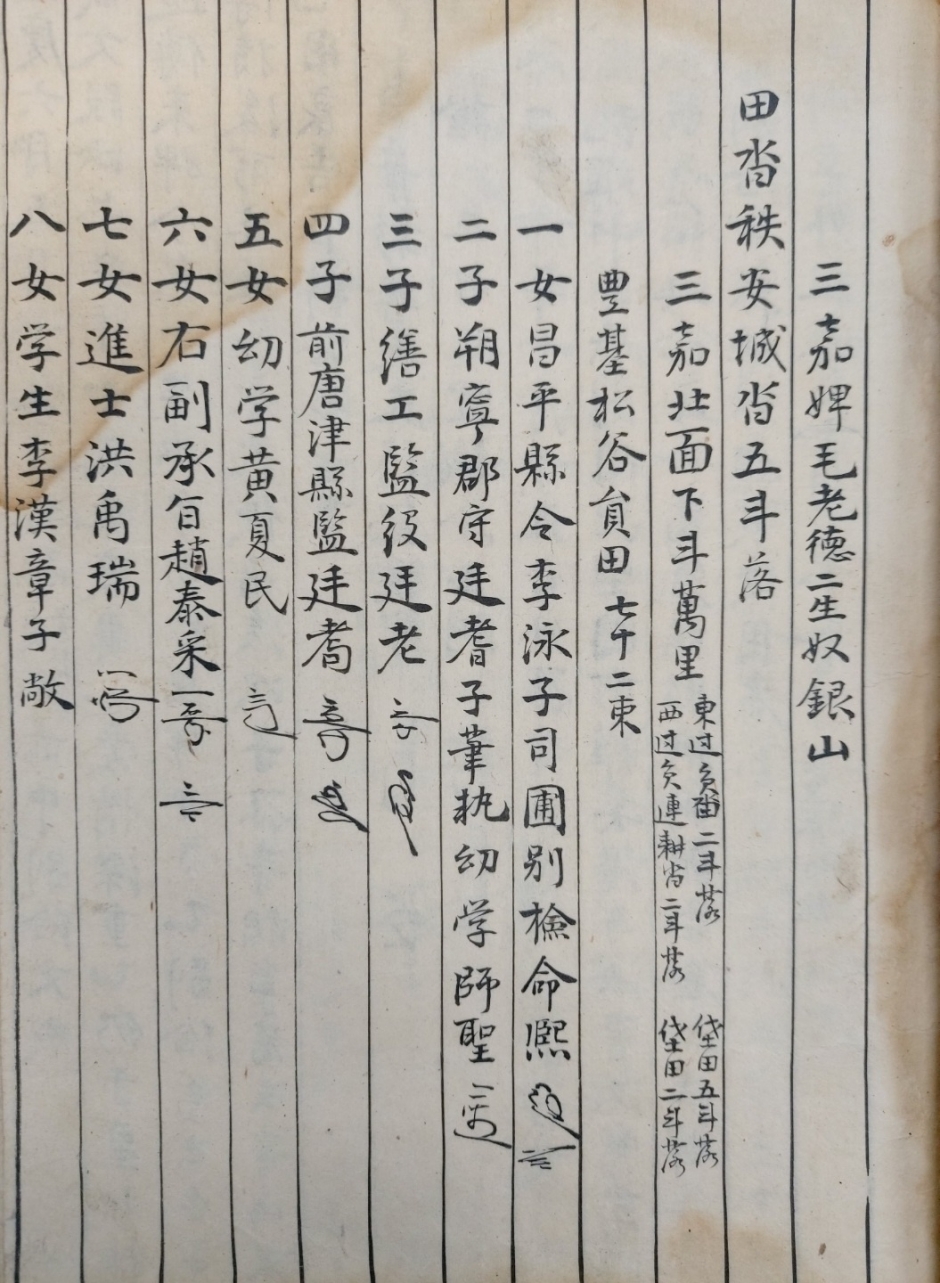 三嘉婢毛老德二生奴銀山
田畓秩安城畓五斗落
三嘉北面下斗萬里
東过負畓二斗落 垈田五斗落
西过負連耕畓二斗落 垈田二斗落
豊基松谷員田七卜二束
一女昌平縣令李泳子司圃别檢命熙
二子朔寧郡守廷耆子筆執幼学師聖
三子繕工監役廷老
四子前唐津縣監廷耈
五女幼学黄夏民
六女右副承旨趙泰采
七女進士洪禹瑞
八女学生李漢章子敞